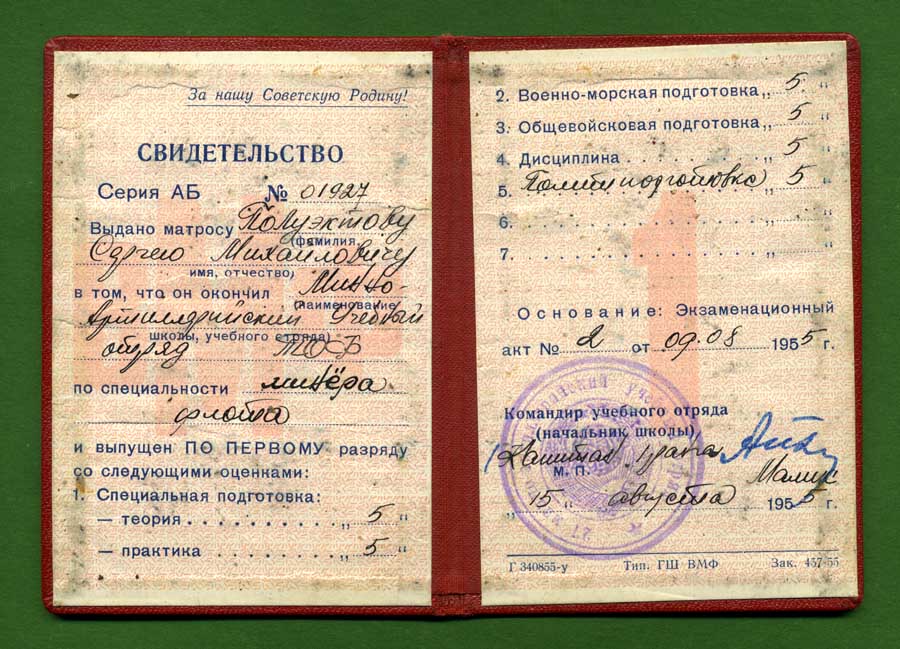 За нашу Советскую Родину!
СВИДЕТЕЛЬСТВО
Серия АБ № 01927
Выдано матросу Полуэктову
(фамилия,
Сергею Михайловичу
имя, отчество)
в том, что он окончил Минно-
(наименование
Артиллерийский Учебный
школы, учебного отряда)
отряд ТОФ
по специальности минёра
флота
и выпущен ПО ПЕРВОМУ разряду
со следующими оценками:
1. Специальная подготовка:
— теория . . . . . . . . . . „ 5 “
— практика . . . . . . . . . „ 5 “
2. Военно-морская подготовка „ 5 “
3. Общевойсковая подготовка „ 5 “
4. Дисциплина . . . . . . . . „ 5 “
5. Политподготовка „ 5 “
6. . . . . . . . . . . . „ “
7. . . . . . . . . . . . „ “
Основание: Экзаменационный
акт № 2 от 09.08 1955 г.
Командир учебного отряда
(начальник школы)
Капитан 1 ранга
М. П.
„ 15 “ августа 1955 г.
Г 340855-у Тип. ГШ ВМФ Зак. 457-55